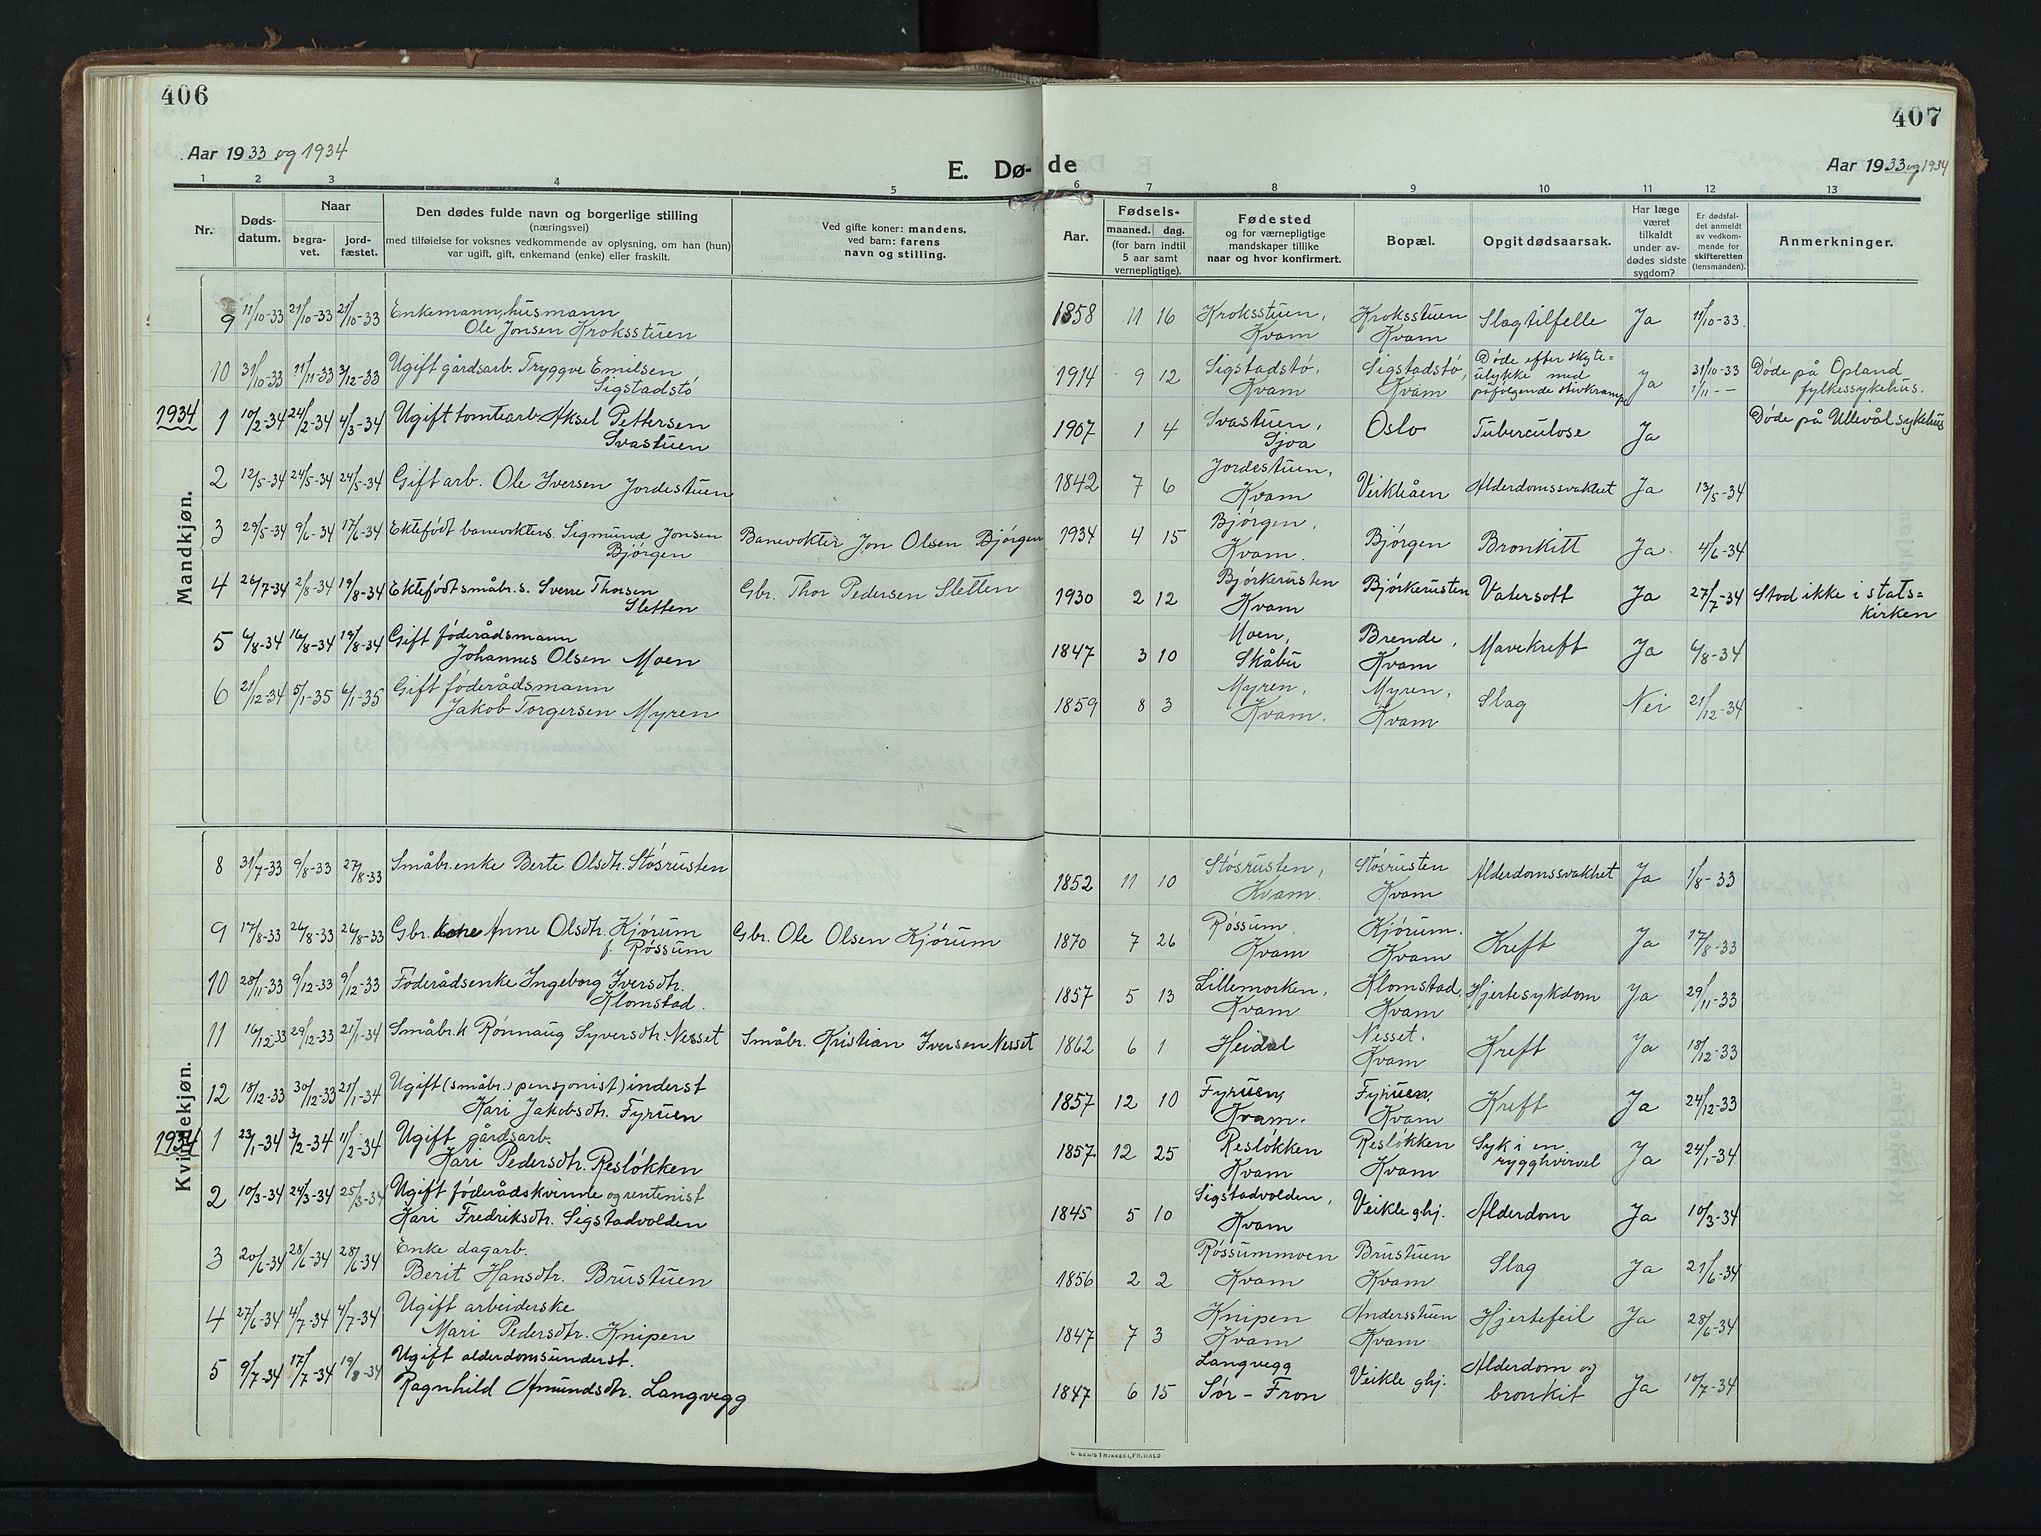 406
Aar 1933 og 1934
E. Dø-
1 2 3 4 5
Nr.
Døds-
datum.
Naar
begra-
vet.
jord-
fæstet.
Den dødes fulde navn og borgerlige stilling
(næringsvei)
med tilføielse for voksnes vedkommende av oplysning, om han (hun)
var ugift, gift, enkemand (enke) eller fraskilt.
Ved gifte koner: mandens,
ved barn: farens
navn og stilling.
Mandkjøn.
9 11/10-33 21/10-33 21/10-33 Enkemann, husmann
Ole Jonsen Kroksstuen
10 31/10-33 11/11-33 3/12-33 Ugift gårdsarb. Tryggve Emilsen
Sigstadstø
1934 1 10/2-34 24/2-34 4/3-34 Ugift tomtearb. Aksel Pettersen
Svastuen
2 12/5-34 24/5-34 24/5-34 Gift arb. Ole Iversen Jordestuen
3 29/5-34 9/6-34 17/6-34 Ektefødt banevokters. Sigmund Jonsen Banevokter Jon Olsen Bjørgen
Bjørgen
4 26/7-34 2/8-34 19/8-34 Ektefødt småbr.s. Sverre Thorsen Gbr. Thor Pedersen Sletten
Sletten
5 6/8-34 16/8-34 19/8-34 Gift føderådsmann
Johannes Olsen Moen
6 21/12-34 5/1-35 6/1-35 Gift føderådsmann
Jakob Torgersen Myren
Kvindekjøn.
8 31/7-33 9/8-33 27/8-33 Småbr.enke Berte Olsdtr. Støsrusten
9 17/8-33 26/8-33 26/8-33 Gbr.kone Anne Olsdtr. Kjørum Gbr. Ole Olsen Kjørum
f. Røssum
10 28/11-33 9/12-33 9/12-33 Føderådsenke Ingeborg Iversdtr.
Klomstad.
11 16/12-33 29/12-33 21/1-34 Småbr.k Rønnaug Syversdtr. Nesset Småbr. Kristian Iversen Nesset
12 18/12-33 30/12-33 21/1-34 Ugift (småbr., pensjonist) inderst
Kari Jakobsdtr. Fyruen
1934 1 23/1-34 3/2-34 11/2-34 Ugift gårdsarb.
Kari Pedersdtr. Resløkken
2 10/3-34 24/3-34 25/3-34 Ugift føderådskvinne og rentenist
Kari Fredriksdtr. Sigstadvolden
3 20/6-34 28/6-34 28/6-34 Enke dagarb.
Berit Hansdtr. Brustuen
4 27/6-34 4/7-34 4/7-34 Ugift arbeiderske
Mari Pedersdtr. Knipen
5 9/7-34 17/7-34 19/8-34 Ugift alderdomsunderst.
Ragnhild Amundsdtr. Langvegg
407
de
Aar 1933 og 1934
6 7 8 9 10 11 12 13
Aar.
Fødsels-
maaned. dag.
(for barn indtil
5 aar samt
vernepligtige).
Fødested
og for værnepligtige
mandskaper tillike
naar og hvor konfirmert.
Bopæl.
Opgit dødsaarsak.
Har læge
været
tilkaldt
under av-
dødes sidste
sygdom?
Er dødsfal-
det anmeldt
av vedkom-
mende for
skifteretten
(lensmanden).
Anmerkninger.
1858 11 16 Kroksstuen, Kroksstuen Slagtilfelle Ja 11/10-33
Kvam Kvam
1914 9 12 Sigstadstø, Sigstadstø, Døde efter skyte- Ja 31/10-33 Døde på Opland
Kvam Kvam ulykke med 1/11 - - fylkessykehus.
påfølgende stivkrampe
1907 1 4 Svastuen, Oslo Tuberculose Ja Døde på Ullevål sykehus
Sjoa
1842 7 6 Jordestuen, Veikleåen Alderdomssvakhet Ja 13/5-34
Kvam
1934 4 15 Bjørgen, Bjørgen Bronkitt Ja 4/6-34
Kvam.
1930 2 12 Bjørkerusten Bjørkerusten Vatersott Ja 27/7-34 Stod ikke i stats-
Kvam kirken
1847 3 10 Moen, Brende, Mavekreft Ja 6/8-34
Skåbu Kvam
1859 8 3 Myren, Myren, Slag Nei 21/12-34
Kvam. Kvam
1852 11 10 Støsrusten, Støsrusten Alderdomssvakhet Ja 1/8-33
Kvam. Kvam
1870 7 26 Røssum, Kjørum. Kreft Ja 17/8-33
Kvam Kvam
1857 5 13 Lillemorken, Klomstad, Hjertesykdom Ja 29/11-33
Kvam Kvam
1862 6 1 Heidal Nesset, Kreft Ja 18/12-33
Kvam
1857 12 10 Fyruen, Fyruen, Kreft Ja 24/12-33
Kvam. Kvam
1857 12 25 Resløkken Resløkken Syk i en Ja 24/1-34
Kvam Kvam rygghvirvel
1845 5 10 Sigstadvolden, Veikle ghj. Alderdom Ja 10/3-34
Kvam
1856 2 2 Røssummoen Brustuen Slag Ja 21/6-34
Kvam Kvam
1847 7 3 Knipen Andersstuen Hjertefeil Ja 28/6-34
Kvam Kvam
1847 6 15 Langvegg Veikle ghj. Alderdom og Ja 10/7-34
Sør-Fron bronkit